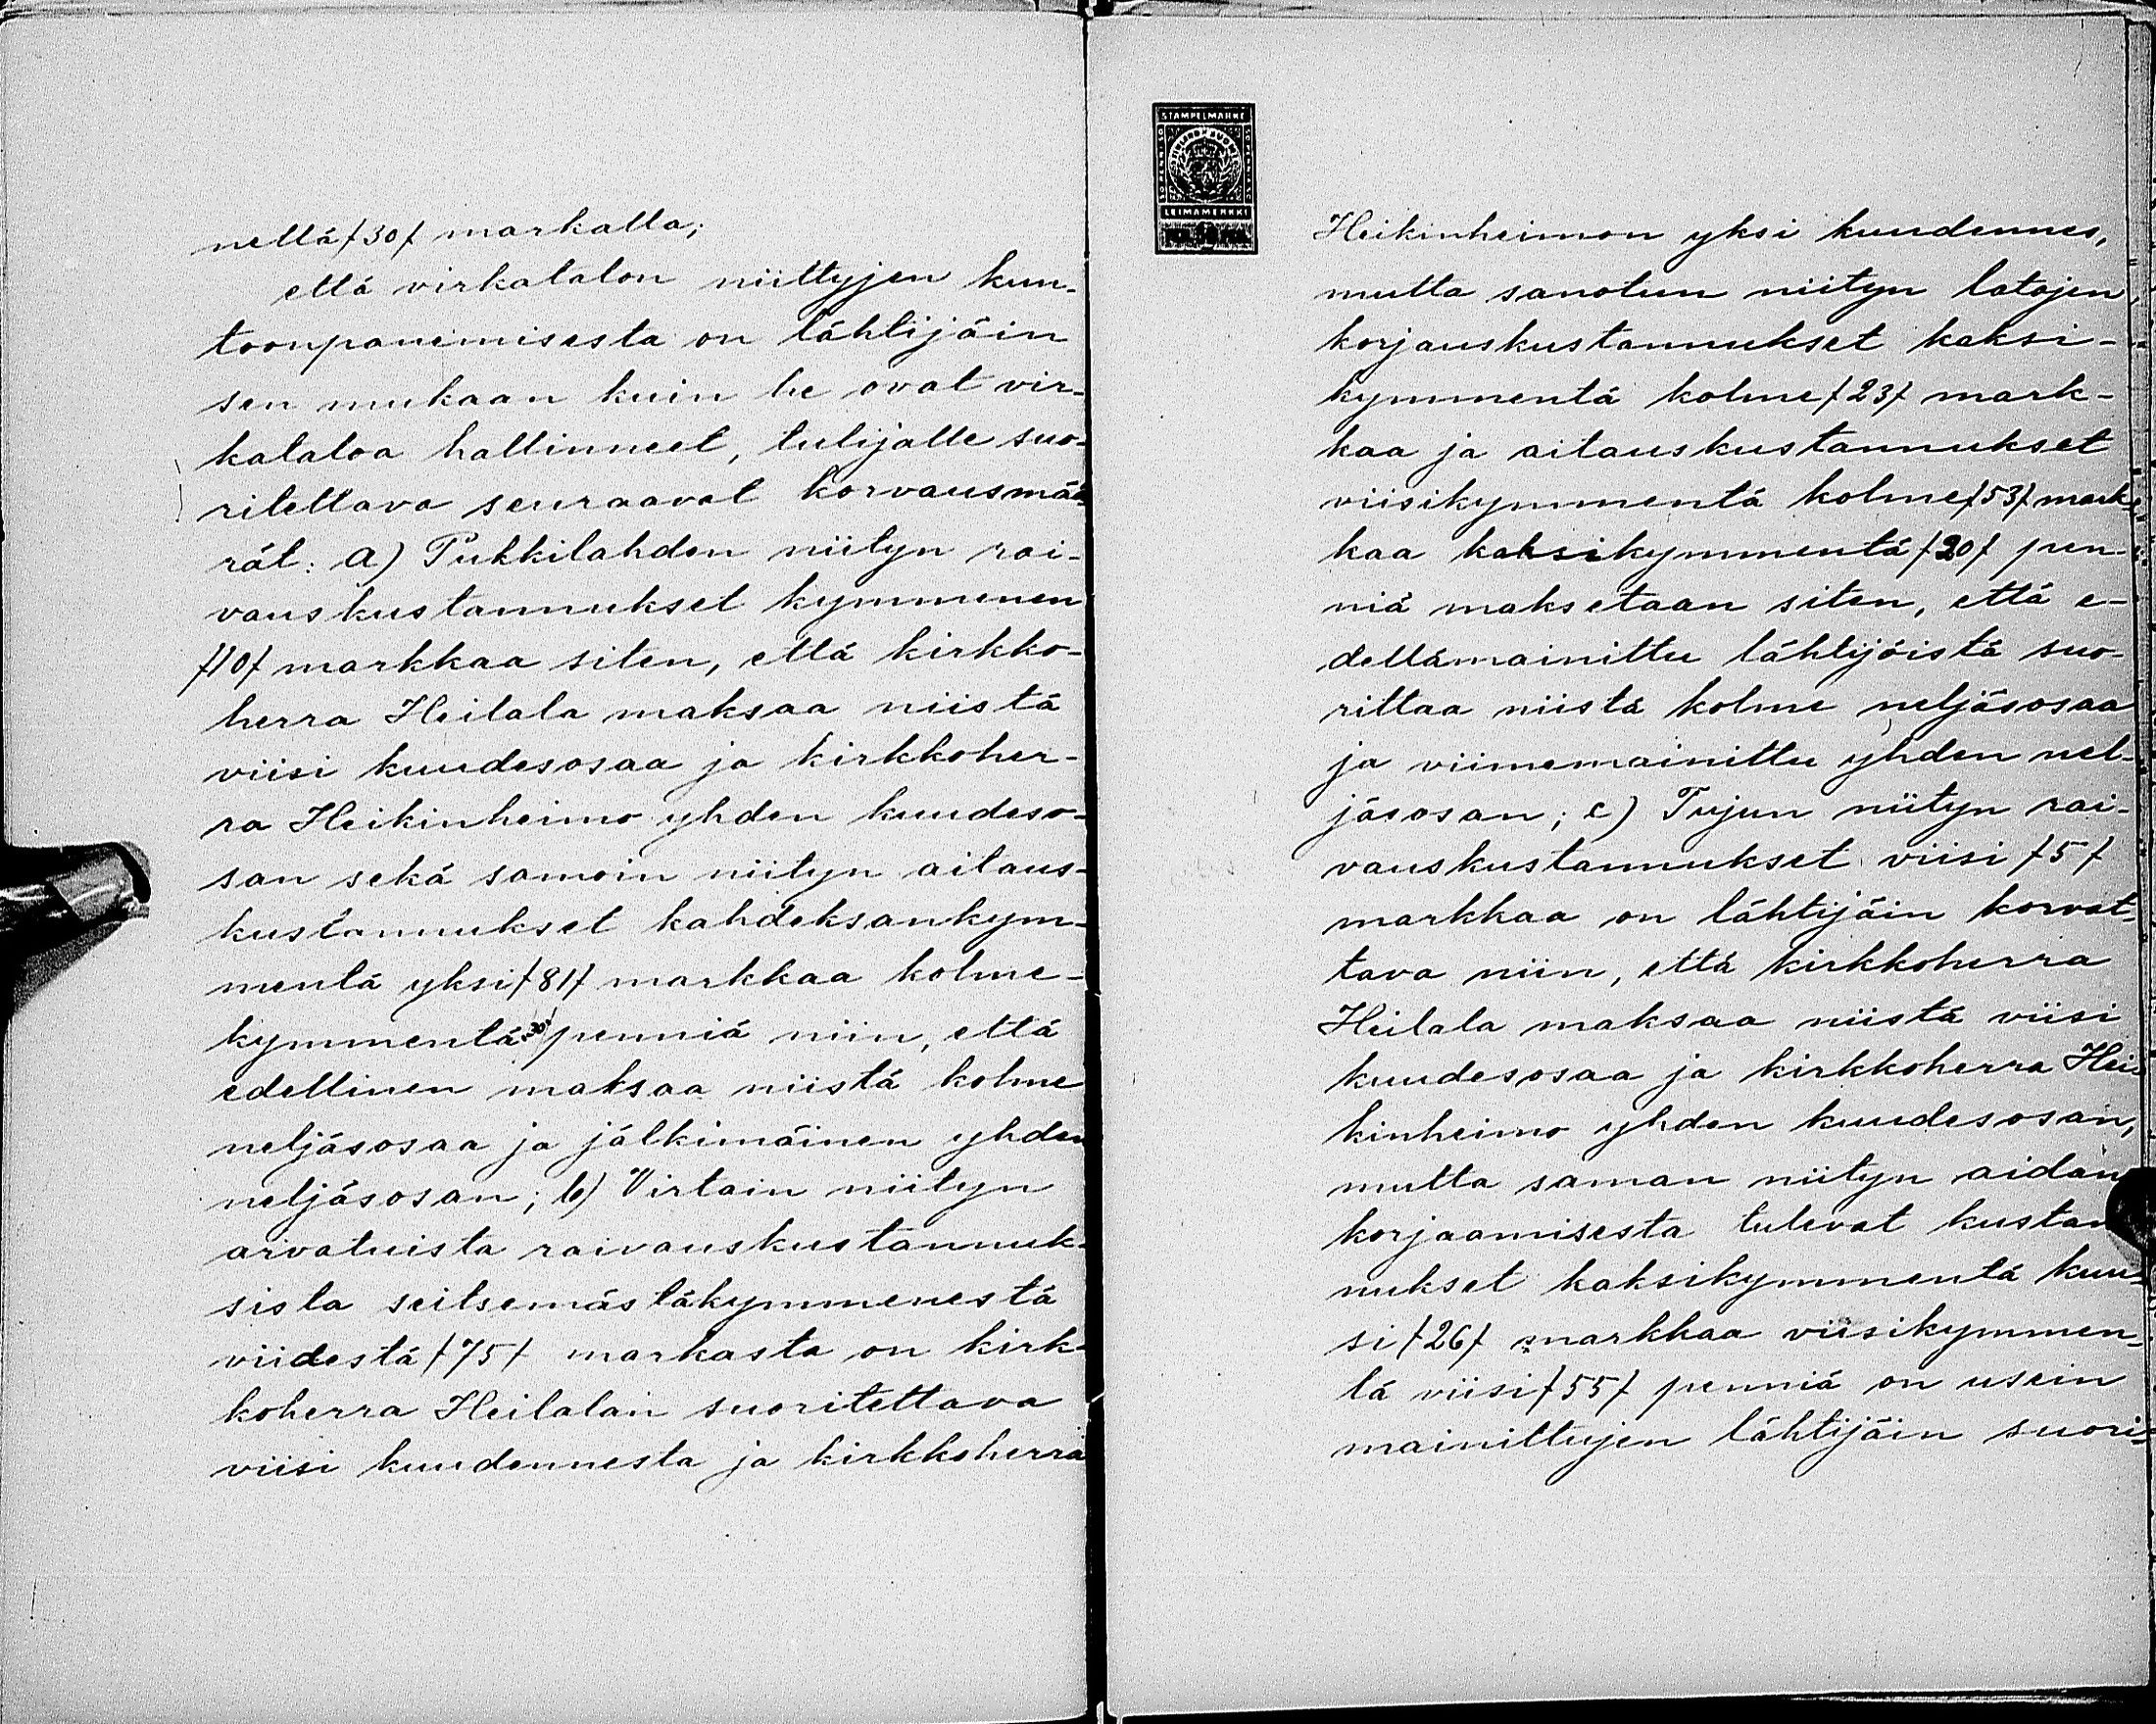 nellä /30/ markalla;
että virkatalon niittyjen kun-
toonpanemisesta on lähtijäin
sen mukaan kuin he ovat vir-
kataloa hallinneet, tulijalle suo-
ritettava seuraavat korvausmää-
rät: a) Pukkilahden niityn rai-
vauskustannukset kymmenen
/10/ markkaa siten, että kirkko-
herra Heilala maksaa niistä
viisi kuudesosaa ja kirkkoher-
ra Heikinheimo yhden kuudeso-
san sekä samoin niityn aitaus-
kustannukset kahdeksankym-
mentä yksi /81/ markkaa kolme-
kymmentä /30/ penniä niin, että
edellinen maksaa niistä kolme
neljäsosaa ja jälkimäinen yhden
neljäsosan; b) Virtain niityn
arvatuista raivauskustannuk-
sista seitsemästäkymmenestä
viidestä /75/ markasta on kirk-
koherra Heilalan suoritettava
viisi kuudennesta ja kirkkoherra
STAMPELMARKE
LEIMAMERKKI
Heikinheimon yksi kuudennes,
mutta sanotun niityn latojen
korjauskustannukset kaksi-
kymmentä kolme /23/ mark-
kaa ja aitauskustannukset
viisikymmentä kolme /53/ mark-
kaa kaksikymmentä /20/ pen-
niä maksetaan siten, että e-
dellämainittu lähtijöistä suo-
rittaa niistä kolme neljäsosaa
ja viimemainittu yhden nel-
jäsosan; c) Tujun niityn rai-
vauskustannukset viisi /5/
markkaa on lähtijäin korvat-
tava niin, että kirkkoherra
Heilala maksaa niistä viisi
kuudesosaa ja kirkkoherra Hei-
kinheimo yhden kuudesosan,
mutta saman niityn aidan
korjaamisesta tulevat kustan
nukset kaksikymmentä kuu-
si /26/ markkaa viisikymmen-
tä viisi /55/ penniä on usein
mainittujen lähtijäin suori-